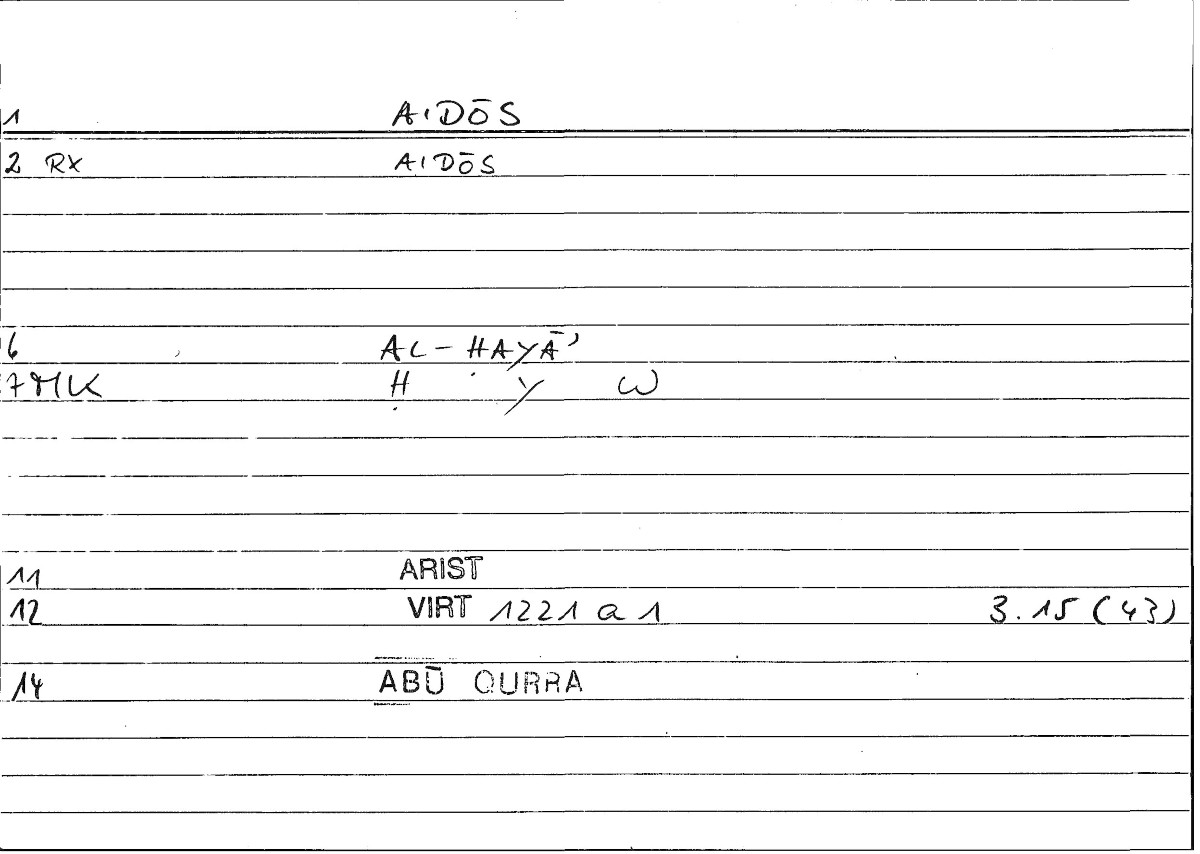 1 AIDŌS
2 RX AIDŌS
6 AL-ḤAYĀʾ
7 MK Ḥ Y W
11 ARIST
12 VIRT 1221 a 1 3.15 (43)
14 ABŪ QURRA